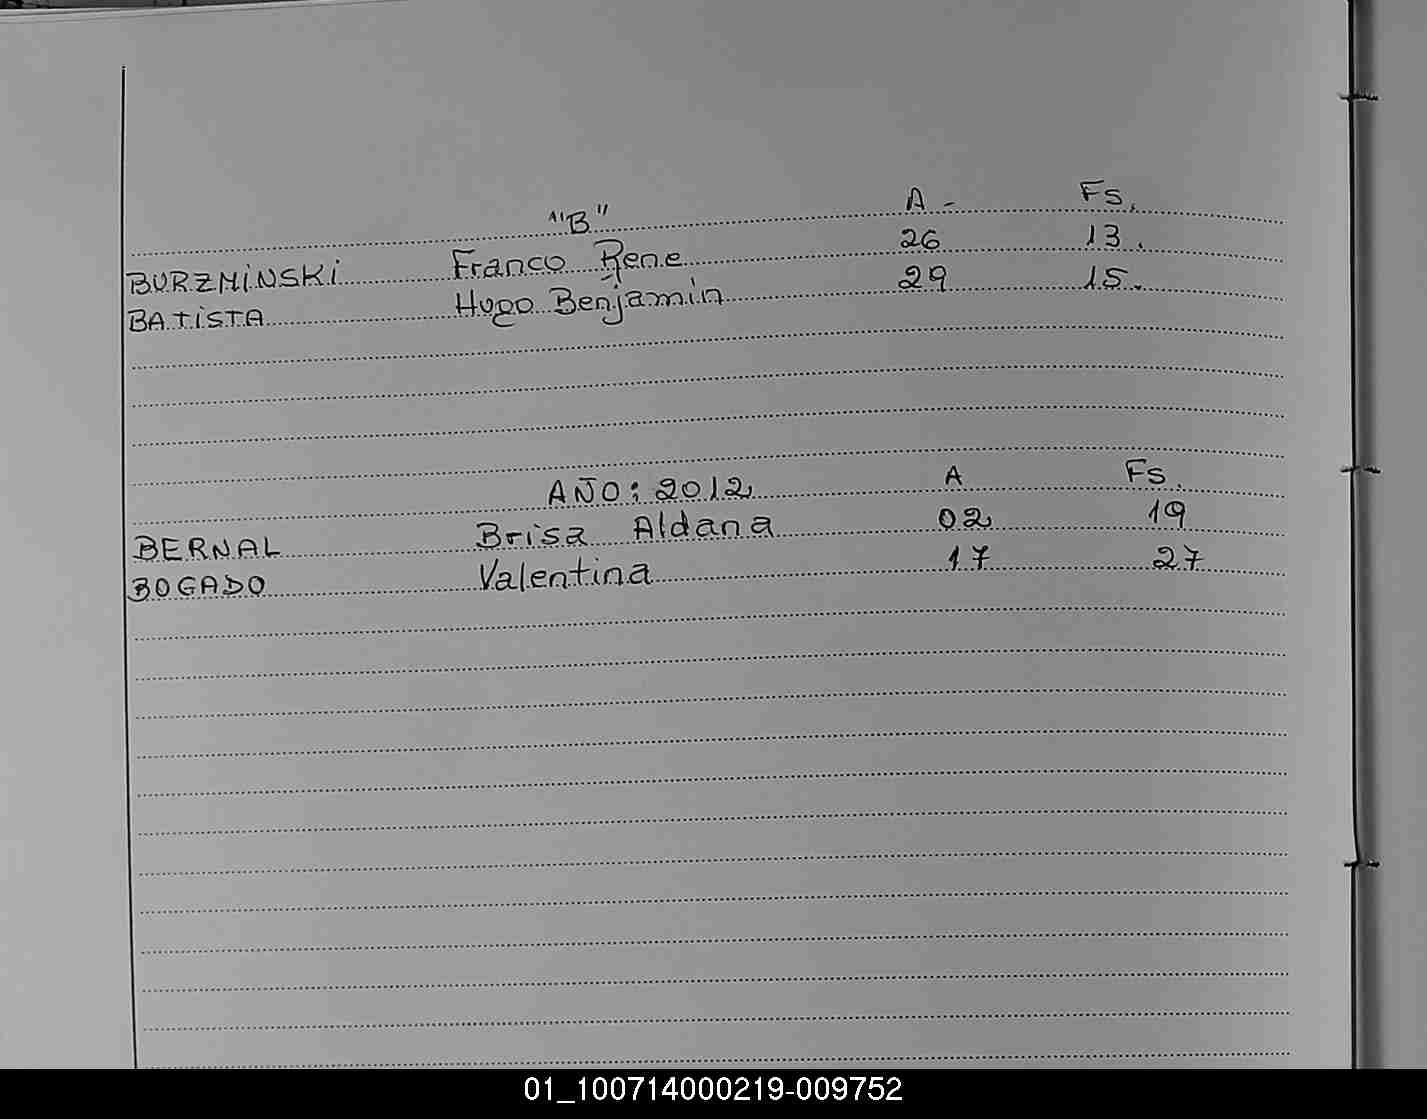 "B" A - Fs.
BURZMINSKI Franco Rene 26 13.
BATISTA Hugo Benjamin 29 15.
AÑO: 2012 A Fs.
BERNAL Brisa Aldana 02 19
BOGADO Valentina 17 27
01_100714000219-009752